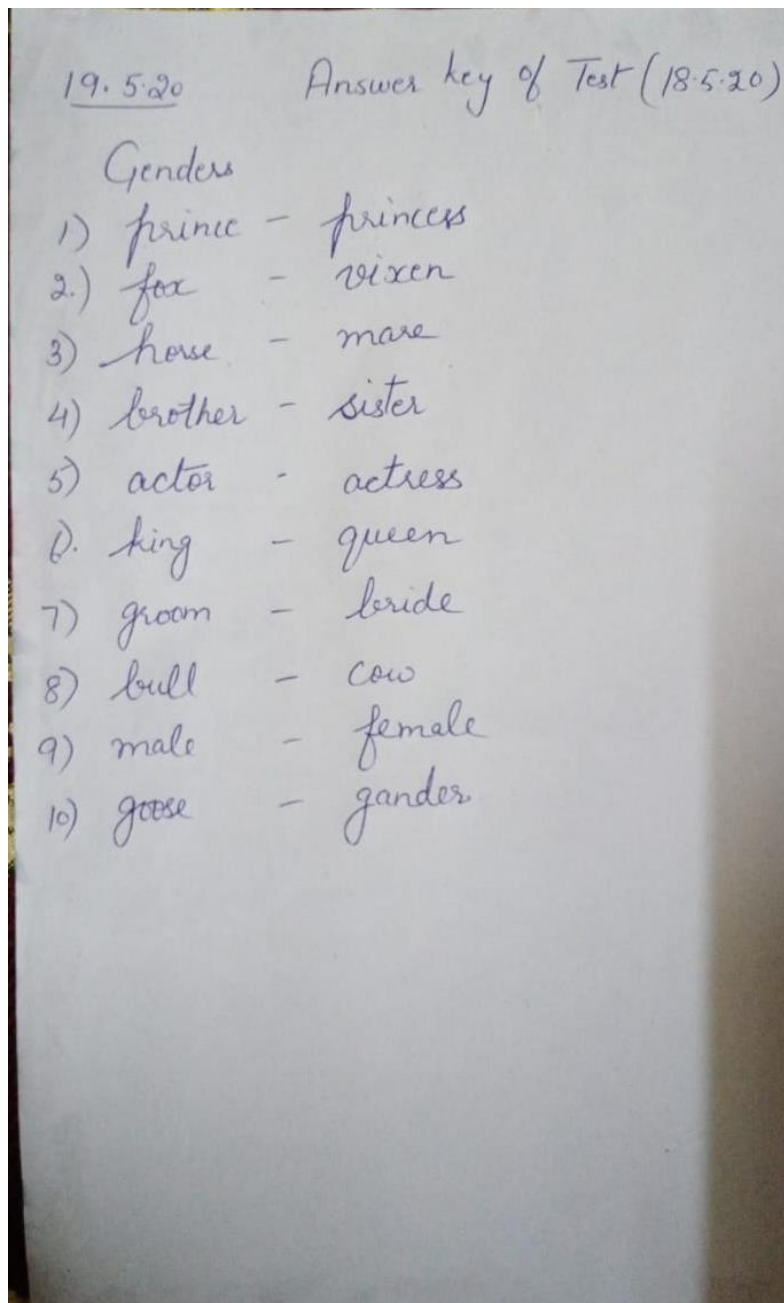 19.5.20 Answer key of Test (18.5.20)
Genders
1) prince - princess
2.) fox - vixen
3) horse - mare
4) brother - sister
5) actor - actress
6). king - queen
7) groom - bride
8) bull - cow
9) male - female
10) goose - gander